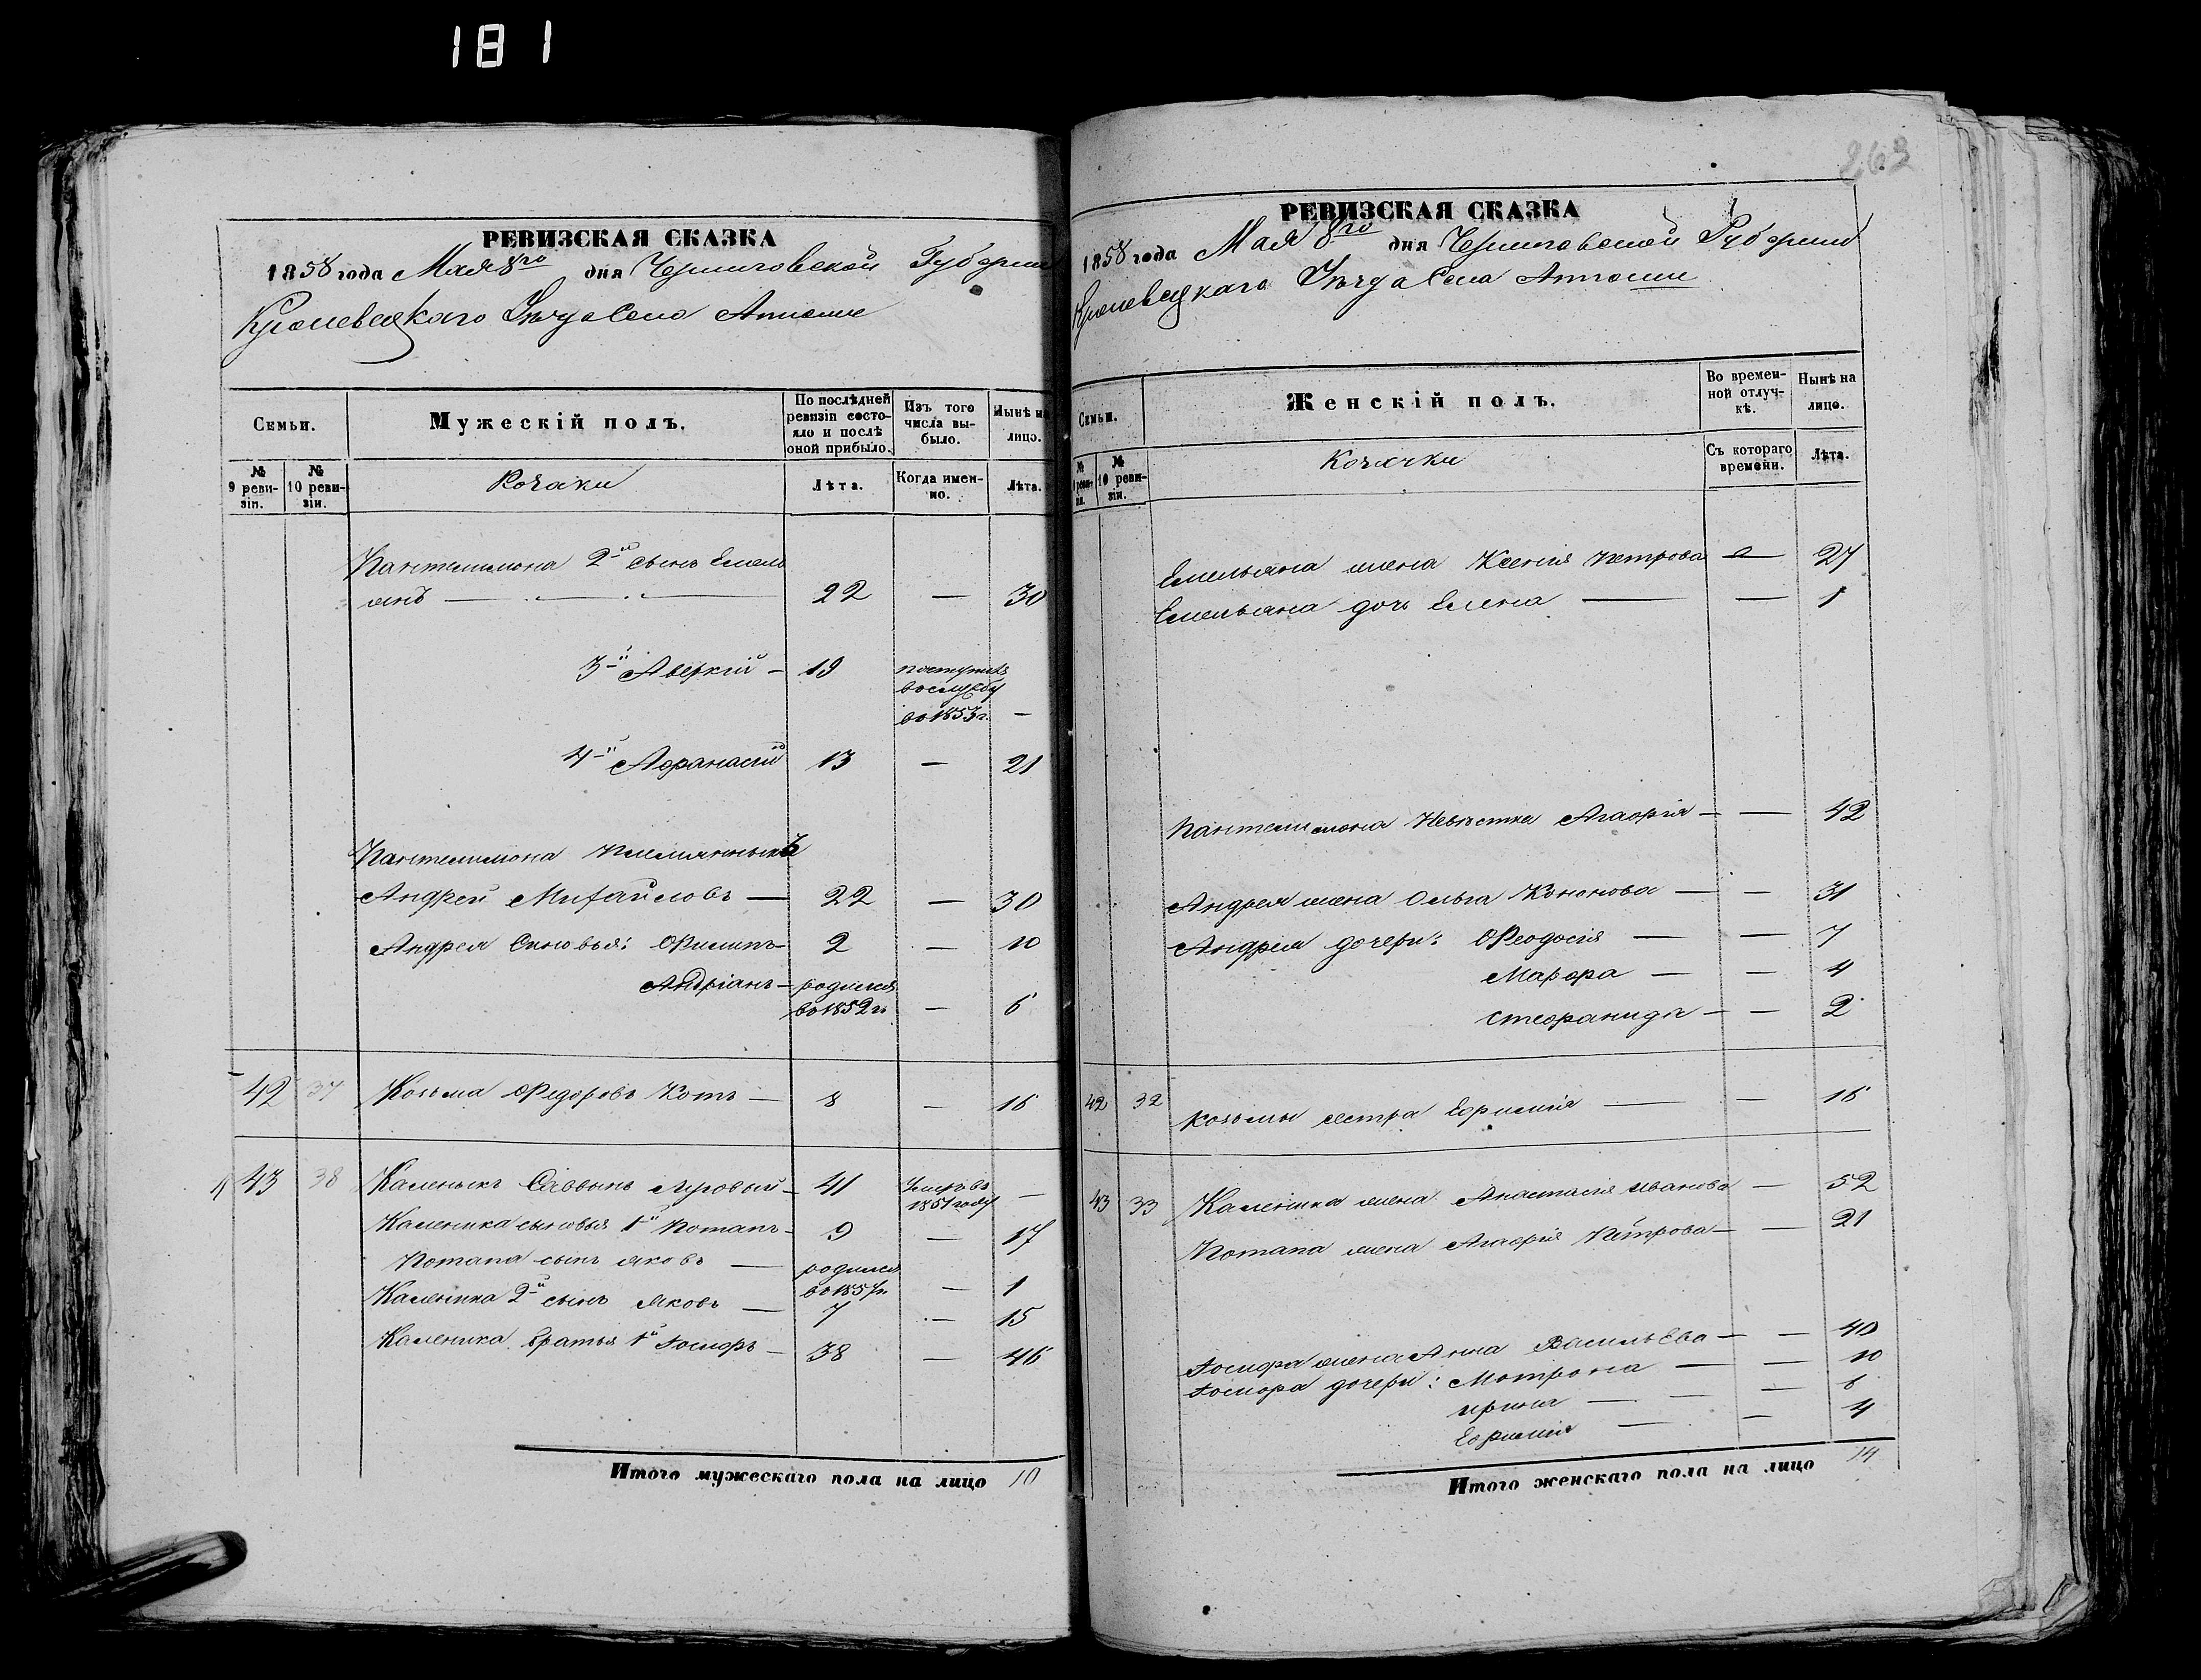 181
263
РЕВИЗСКАЯ СКАЗКА
1858 года Мая 8го дня Черниговской Губерніи
Кролевецкаго Уѣзда Села
Семьи.
Мужескій полъ.
По послѣдней ревизіи состояло и послѣ оной прибыло.
Изъ того числа выбыло.
Нынѣ на лицо.
№ 9 ревизіи.
№ 10 ревизіи.
Козаки
Лѣта.
Когда именно.
Лѣта.
Пантелимона 2й сынъ Емель
янъ — 22 — 30
3й Аверкій — 19 поступилъ
вослужбу
во 1853 г. —
4й Афанасій 13 — 21
Пантелимона племянникъ
Андрей Михайловъ — 22 — 30
Андрея Сыновья: Филипъ — 2 — 10
Андріанъ — родился
во 1852 г. — 6
42 37 Козьма Федоровъ Котъ — 8 — 16
43 38 Каленикъ Саввинъ — 41 Умеръ въ
1851 году —
Каленика сыновья 1й Потапъ — 9 — 17
Потапа сынъ Яковъ — родился
во 1857 г. — 1
Каленика 2й сынъ Яковъ — 7 — 15
Каленика братья 1й Іосифъ — 38 — 46
Итого мужескаго пола на лицо 10
РЕВИЗСКАЯ СКАЗКА
1858 года Мая 8го дня Черниговской Губерніи
Кролевецкаго Уѣзда Села
Семьи.
Женскій полъ.
Во временной отлучкѣ.
Нынѣ на лицо.
№ 9 ревизіи.
№ 10 ревизіи.
Козачки
Съ котораго времени.
Лѣта.
Емельяна жена Ксенія Петрова — 27
Емельяна дочь Елена — — 1
Пантелимона Невѣстка Агафія — — 42
Андрея жена Ольга Кононова — — 31
Андрея дочери: Феодосія — — 7
Марфа — — 4
Стефанида — — 2
42 32 Козьмы сестра Ефимія — — 16
43 33 Каленика жена Анастасія Иванова — 52
Потапа жена Агафія Петрова — — 21
Іосифа жена Анна Васильева — — 40
Іосифа дочери: Мотрона — — 10
Ирина — — 6
Ефимія — — 4
Итого женскаго пола на лицо 14